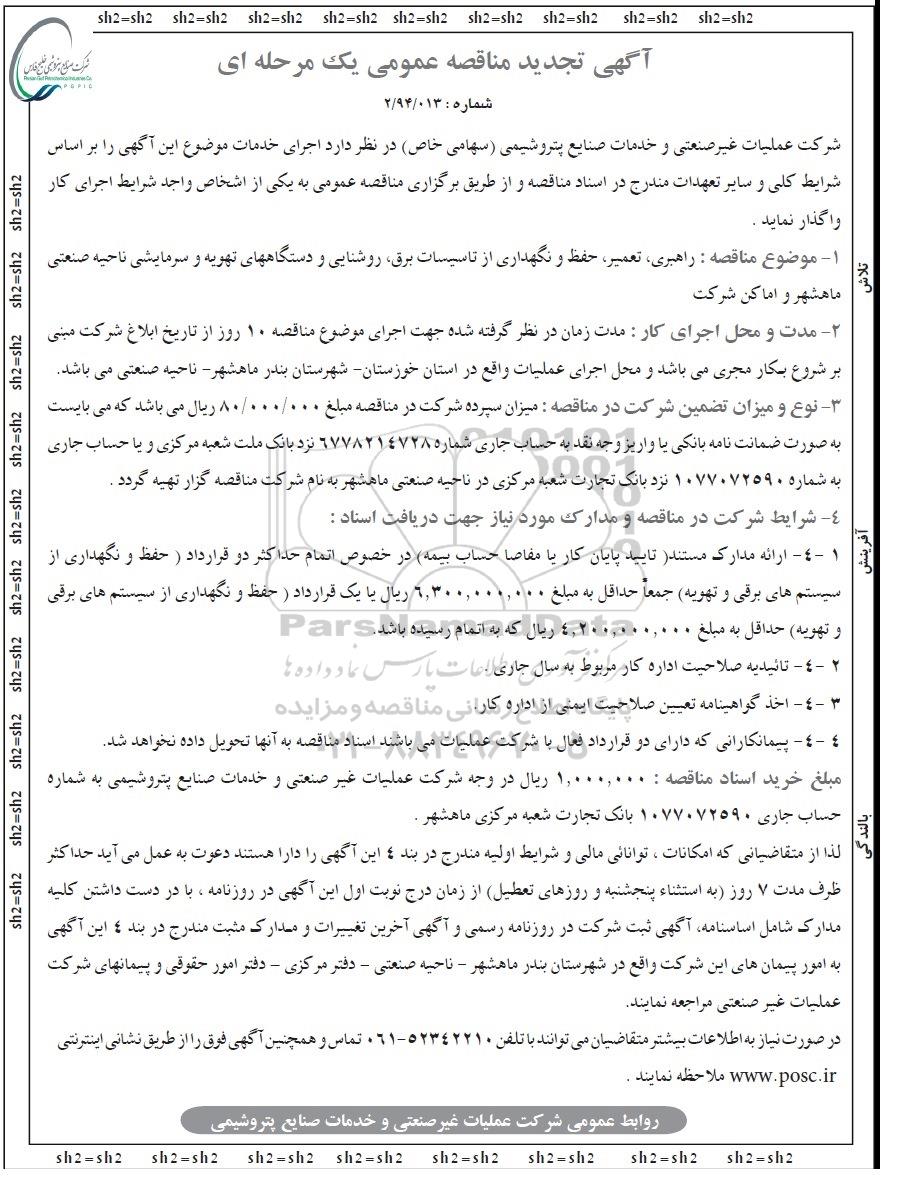 sh2=sh2 sh2=sh2 sh2=sh2 sh2=sh2 sh2=sh2 sh2=sh2 sh2=sh2 sh2=sh2 sh2=sh2
شرکت صنایع پتروشیمی خلیج فارس
Persian Gulf Petrochemical Industries Co.
P G P I C
آگهی تجدید مناقصه عمومی یک مرحله ای
شماره : ۲/۹۴/۰۱۳
شرکت عملیات غیرصنعتی و خدمات صنایع پتروشیمی (سهامی خاص) در نظر دارد اجرای خدمات موضوع این آگهی را بر اساس
شرایط کلی و سایر تعهدات مندرج در اسناد مناقصه و از طریق برگزاری مناقصه عمومی به یکی از اشخاص واجد شرایط اجرای کار
واگذار نماید .
۱- موضوع مناقصه : راهبری، تعمیر، حفظ و نگهداری از تاسیسات برق، روشنایی و دستگاههای تهویه و سرمایشی ناحیه صنعتی
ماهشهر و اماکن شرکت
۲- مدت و محل اجرای کار : مدت زمان در نظر گرفته شده جهت اجرای موضوع مناقصه ۱۰ روز از تاریخ ابلاغ شرکت مبنی
بر شروع بکار مجری می باشد و محل اجرای عملیات واقع در استان خوزستان- شهرستان بندر ماهشهر- ناحیه صنعتی می باشد.
۳- نوع و میزان تضمین شرکت در مناقصه : میزان سپرده شرکت در مناقصه مبلغ ۸۰/۰۰۰/۰۰۰ ریال می باشد که می بایست
به صورت ضمانت نامه بانکی یا واریز وجه نقد به حساب جاری شماره ۶۷۷۸۲۱۴۷۲۸ نزد بانک ملت شعبه مرکزی و یا حساب جاری
به شماره ۱۰۷۷۰۷۲۵۹۰ نزد بانک تجارت شعبه مرکزی در ناحیه صنعتی ماهشهر به نام شرکت مناقصه گزار تهیه گردد .
۴- شرایط شرکت در مناقصه و مدارک مورد نیاز جهت دریافت اسناد :
۱ -۴- ارائه مدارک مستند( تایید پایان کار یا مفاصا حساب بیمه) در خصوص اتمام حداکثر دو قرارداد ( حفظ و نگهداری از
سیستم های برقی و تهویه) جمعاً حداقل به مبلغ ۶,۳۰۰,۰۰۰,۰۰۰ ریال یا یک قرارداد ( حفظ و نگهداری از سیستم های برقی
و تهویه) حداقل به مبلغ ۴,۲۰۰,۰۰۰,۰۰۰ ریال که به اتمام رسیده باشد.
ParsNamadData
۲ -۴- تائیدیه صلاحیت اداره کار مربوط به سال جاری .
مرکز فرآوری اطلاعات پارس نماد داده ها
۳ -۴- اخذ گواهینامه تعیین صلاحیت ایمنی از اداره کار.
پایگاه اطلاع رسانی مناقصه و مزایده
۴ -۴- پیمانکارانی که دارای دو قرارداد فعال با شرکت عملیات می باشند اسناد مناقصه به آنها تحویل داده نخواهد شد.
۰۲۱-۸۸۳۴۹۶۷۰-۵
مبلغ خرید اسناد مناقصه : ۱,۰۰۰,۰۰۰ ریال در وجه شرکت عملیات غیر صنعتی و خدمات صنایع پتروشیمی به شماره
حساب جاری ۱۰۷۷۰۷۲۵۹۰ بانک تجارت شعبه مرکزی ماهشهر .
لذا از متقاضیانی که امکانات ، توانائی مالی و شرایط اولیه مندرج در بند ۴ این آگهی را دارا هستند دعوت به عمل می آید حداکثر
ظرف مدت ۷ روز (به استثناء پنجشنبه و روزهای تعطیل) از زمان درج نوبت اول این آگهی در روزنامه ، با در دست داشتن کلیه
مدارک شامل اساسنامه، آگهی ثبت شرکت در روزنامه رسمی و آگهی آخرین تغییرات و مدارک مثبت مندرج در بند ۴ این آگهی
به امور پیمان های این شرکت واقع در شهرستان بندر ماهشهر - ناحیه صنعتی - دفتر مرکزی - دفتر امور حقوقی و پیمانهای شرکت
عملیات غیر صنعتی مراجعه نمایند.
در صورت نیاز به اطلاعات بیشتر متقاضیان می توانند با تلفن ۵۲۳۴۲۲۱۰-۰۶۱ تماس و همچنین آگهی فوق را از طریق نشانی اینترنتی
www.posc.ir ملاحظه نمایند .
روابط عمومی شرکت عملیات غیرصنعتی و خدمات صنایع پتروشیمی
تلاش
آفرینش
بالندگی
sh2=sh2 sh2=sh2 sh2=sh2 sh2=sh2 sh2=sh2 sh2=sh2 sh2=sh2 sh2=sh2 sh2=sh2
sh2=sh2 sh2=sh2 sh2=sh2 sh2=sh2 sh2=sh2 sh2=sh2 sh2=sh2 sh2=sh2